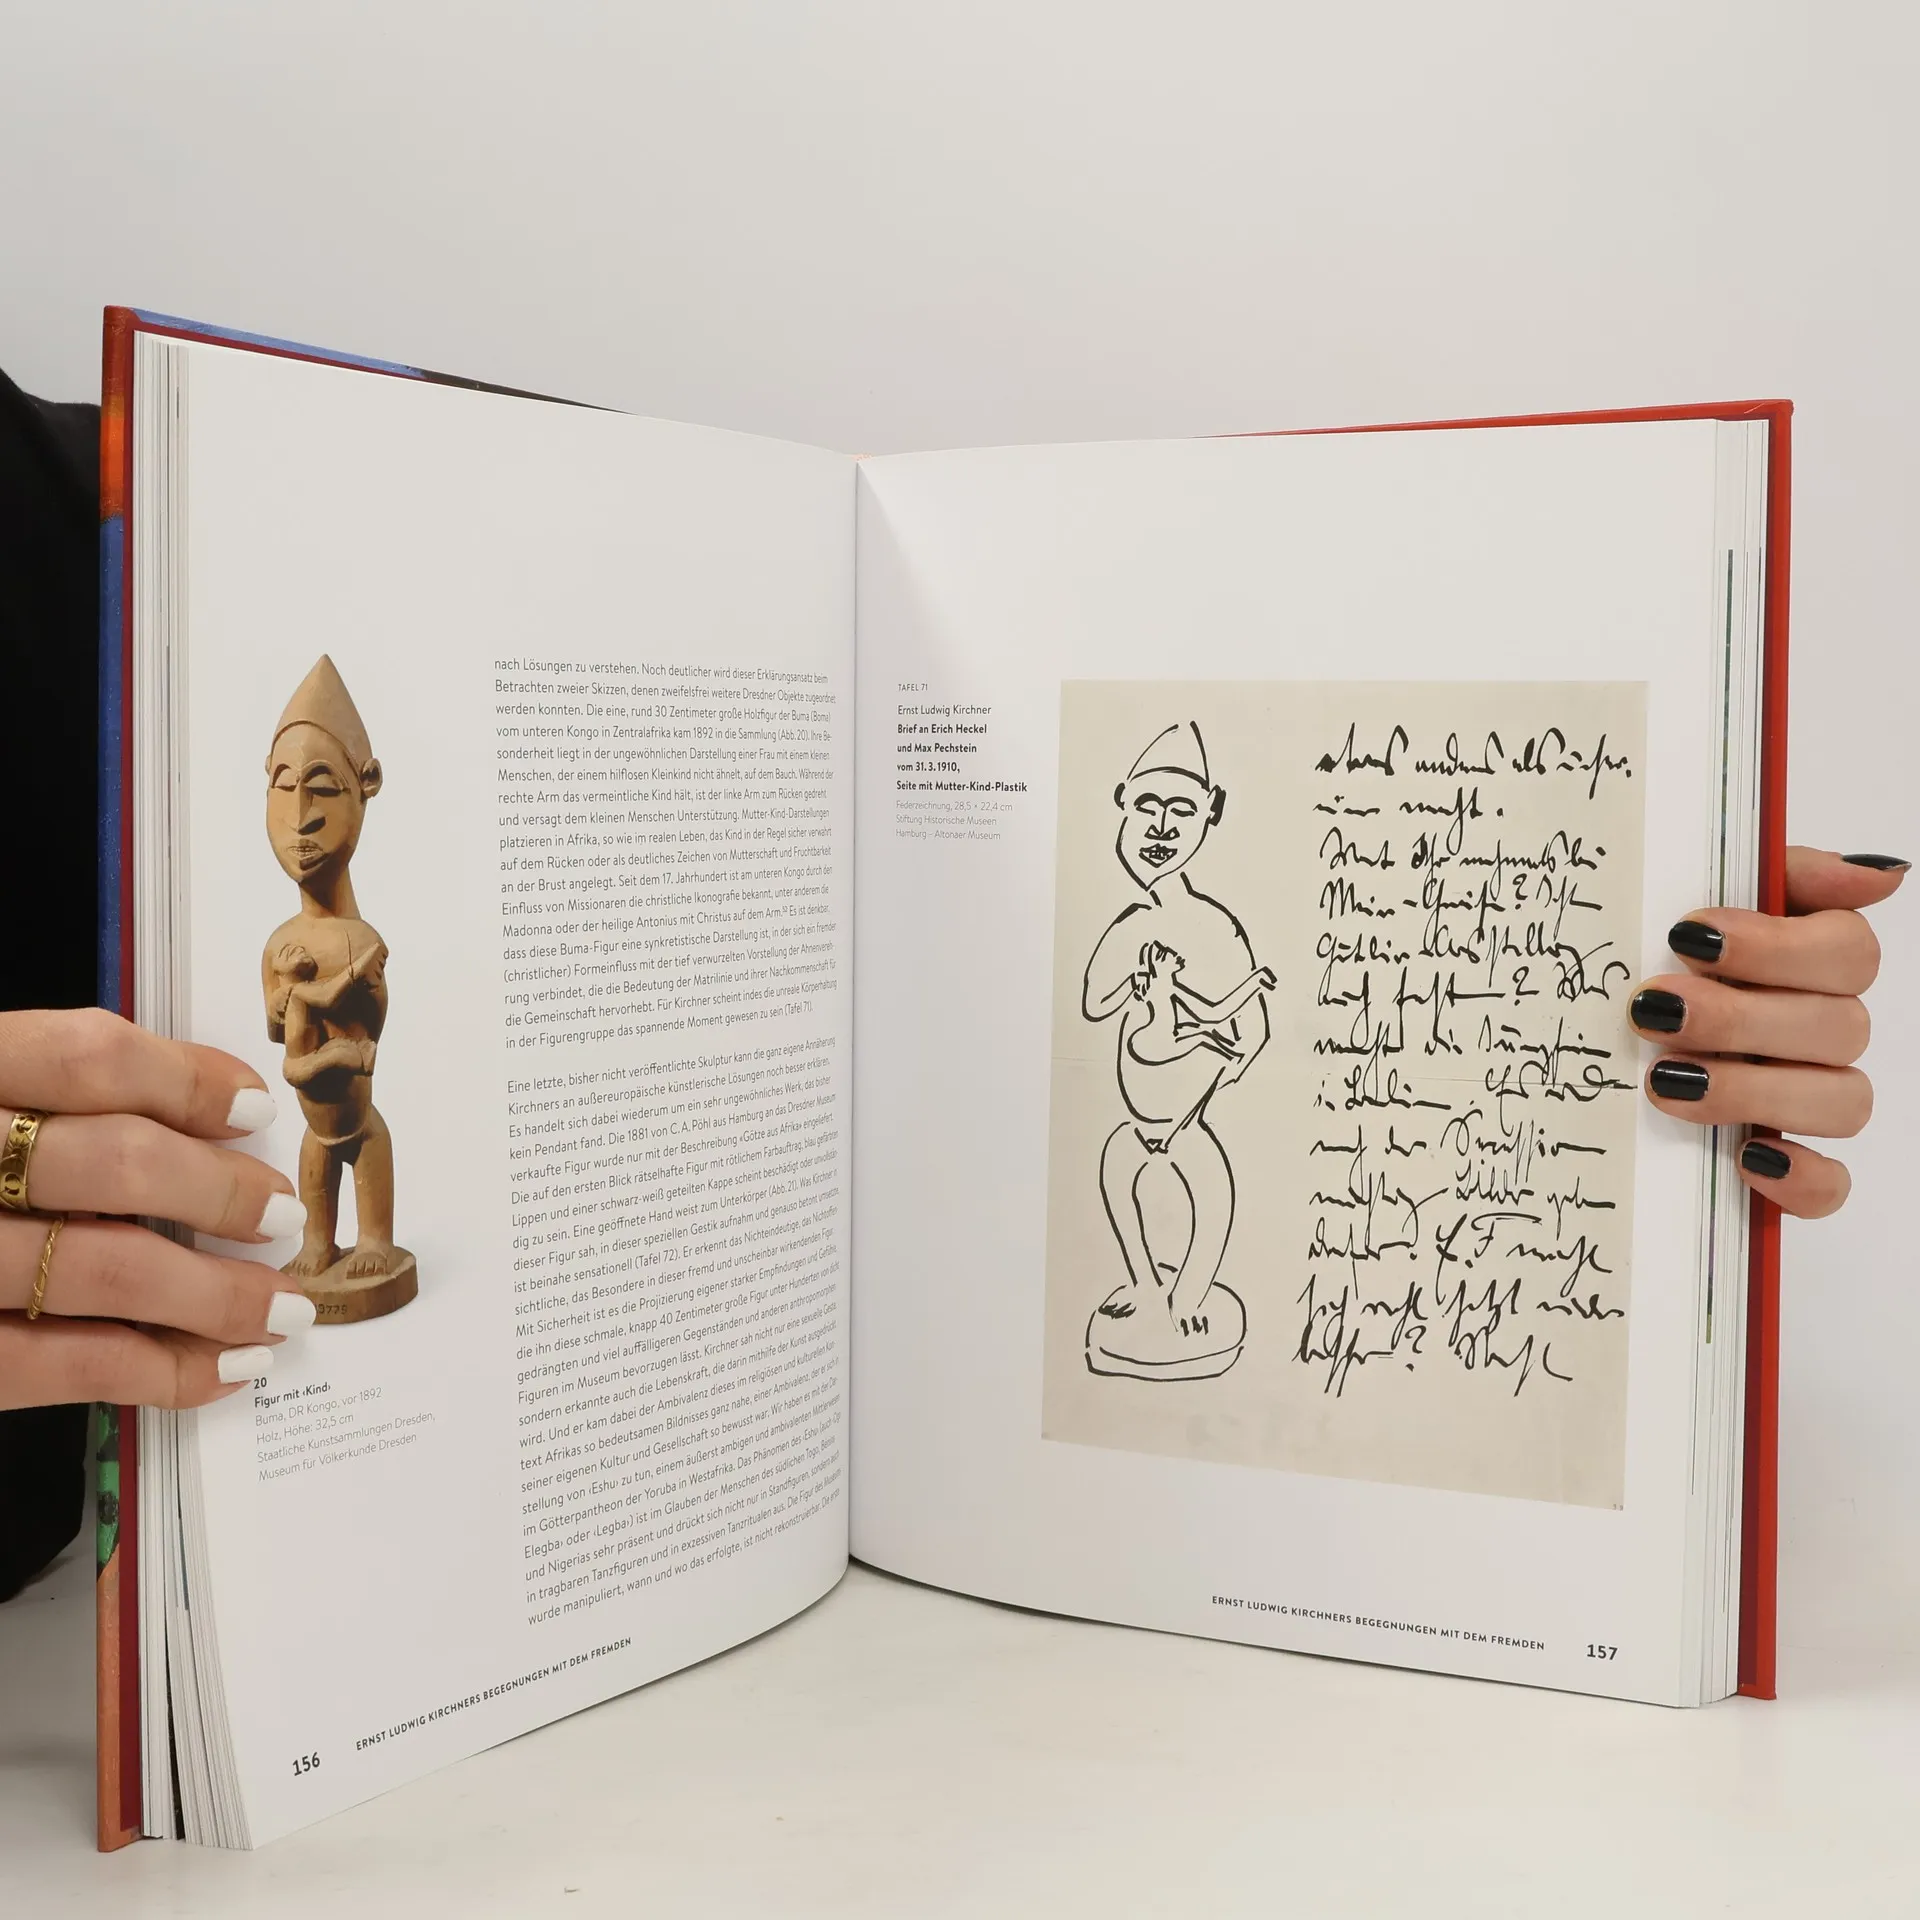 nach Lösungen zu verstehen. Noch deutlicher wird dieser Erklärungsansatz beim
Betrachten zweier Skizzen, denen zweifelsfrei weitere Dresdner Objekte zugeordnet
werden konnten. Die eine, rund 30 Zentimeter große Holzfigur der Buma (Boma)
vom unteren Kongo in Zentralafrika kam 1892 in die Sammlung (Abb. 20). Ihre Be-
sonderheit liegt in der ungewöhnlichen Darstellung einer Frau mit einem kleinen
Menschen, der einem hilflosen Kleinkind nicht ähnelt, auf dem Bauch. Während der
rechte Arm das vermeintliche Kind hält, ist der linke Arm zum Rücken gedreht
und versagt dem kleinen Menschen Unterstützung. Mutter-Kind-Darstellungen
platzieren in Afrika, so wie im realen Leben, das Kind in der Regel sicher verwahrt
auf dem Rücken oder als deutliches Zeichen von Mutterschaft und Fruchtbarkeit
an der Brust angelegt. Seit dem 17. Jahrhundert ist am unteren Kongo durch den
Einfluss von Missionaren die christliche Ikonografie bekannt, unter anderem die
Madonna oder der heilige Antonius mit Christus auf dem Arm. Es ist denkbar,
dass diese Buma-Figur eine synkretistische Darstellung ist, in der sich ein fremder
(christlicher) Formeinfluss mit der tief verwurzelten Vorstellung der Ahnenvereh-
rung verbindet, die die Bedeutung der Matrilinie und ihrer Nachkommenschaft für
die Gemeinschaft hervorhebt. Für Kirchner scheint indes die unreale Körperhaltung
in der Figurengruppe das spannende Moment gewesen zu sein (Tafel 71).
Eine letzte, bisher nicht veröffentlichte Skulptur kann die ganz eigene Annäherung
Kirchners an außereuropäische künstlerische Lösungen noch besser erklären.
Es handelt sich dabei wiederum um ein sehr ungewöhnliches Werk, das bisher
kein Pendant fand. Die 1881 von C. A. Pöhl aus Hamburg an das Dresdner Museum
verkaufte Figur wurde nur mit der Beschreibung «Götze aus Afrika» eingeliefert.
Die auf den ersten Blick rätselhafte Figur mit rötlichem Farbauftrag, blau gefärbten
Lippen und einer schwarz-weiß geteilten Kappe scheint beschädigt oder unvollstän-
dig zu sein. Eine geöffnete Hand weist zum Unterkörper (Abb. 21). Was Kirchner in
dieser Figur sah, in dieser speziellen Gestik aufnahm und genauso betont umsetzte,
ist beinahe sensationell (Tafel 72). Er erkennt das Nichteindeutige, das Nichtoffen-
sichtliche, das Besondere in dieser fremd und unscheinbar wirkenden Figur.
Mit Sicherheit ist es die Projizierung eigener starker Empfindungen und Gefühle,
die ihn diese schmale, knapp 40 Zentimeter große Figur unter Hunderten von dicht
gedrängten und viel auffälligeren Gegenständen und anderen anthropomorphen
Figuren im Museum bevorzugen lässt. Kirchner sah nicht nur eine sexuelle Geste,
sondern erkannte auch die Lebenskraft, die darin mithilfe der Kunst ausgedrückt
wird. Und er kam dabei der Ambivalenz dieses im religiösen und kulturellen Kon-
text Afrikas so bedeutsamen Bildnisses ganz nahe, einer Ambivalenz, der er sich in
seiner eigenen Kultur und Gesellschaft so bewusst war. Wir haben es mit der Dar-
stellung von ‹Eshu› zu tun, einem äußerst ambigen und ambivalenten Mittlerwesen
im Götterpantheon der Yoruba in Westafrika. Das Phänomen des ‹Eshu› (auch ‹Ogo
Elegba› oder ‹Legba›) ist im Glauben der Menschen des südlichen Togo, Benins
und Nigerias sehr präsent und drückt sich nicht nur in Standfiguren, sondern auch
in tragbaren Tanzfiguren und in exzessiven Tanzritualen aus. Die Figur des Museums
wurde manipuliert, wann und wo das erfolgte, ist nicht rekonstruierbar. Die erste
3779
20
Figur mit ‹Kind›
Buma, DR Kongo, vor 1892
Holz, Höhe: 32,5 cm
Staatliche Kunstsammlungen Dresden,
Museum für Völkerkunde Dresden
156
ERNST LUDWIG KIRCHNERS BEGEGNUNGEN MIT DEM FREMDEN
TAFEL 71
Ernst Ludwig Kirchner
Brief an Erich Heckel
und Max Pechstein
vom 31.3.1910,
Seite mit Mutter-Kind-Plastik
Federzeichnung, 28,5 × 22,4 cm
Stiftung Historische Museen
Hamburg – Altonaer Museum
etwas anders als
nicht.
Ihr nochmals bei
in Berlin.
der Secession
Bilder geben
macht
sich wohl jetzt
?
ERNST LUDWIG KIRCHNERS BEGEGNUNGEN MIT DEM FREMDEN
157